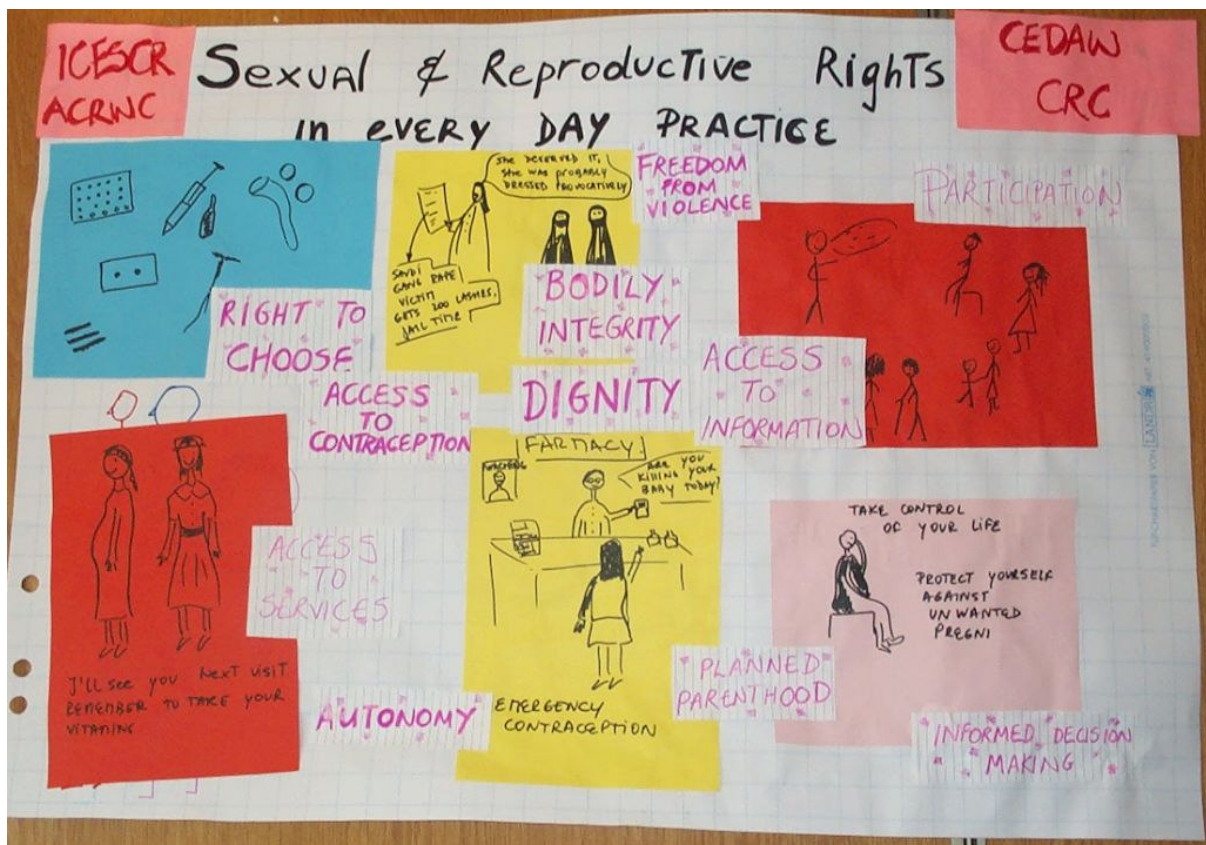 ICESCR
ACRWC
Sexual & Reproductive Rights
in EVERY DAY PRACTICE
CEDAW
CRC
SHE DESERVED IT,
SHE WAS PROBABLY
DRESSED PROVOCATIVELY
SAUDI
GANG RAPE
VICTIM
GETS 200 LASHES,
JAIL TIME
FREEDOM
FROM
VIOLENCE
PARTICIPATION
RIGHT TO
CHOOSE
BODILY
INTEGRITY
ACCESS
TO
CONTRACEPTION
DIGNITY
ACCESS
TO
INFORMATION
FARMACY
ARE YOU
KILLING YOUR
BABY TODAY?
EMERGENCY
CONTRACEPTION
ACCESS
TO
SERVICES
I'LL SEE YOU NEXT VISIT
REMEMBER TO TAKE YOUR
VITAMINS
AUTONOMY
TAKE CONTROL
OF YOUR LIFE
PROTECT YOURSELF
AGAINST
UNWANTED
PREGNI
PLANNED
PARENTHOOD
INFORMED DECISION
MAKING